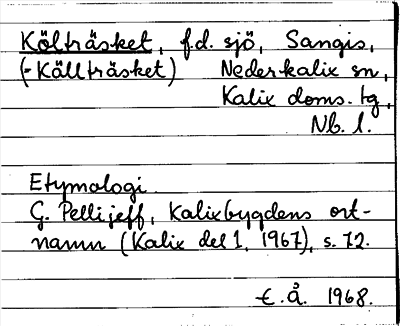 Költräsket, f.d. sjö, Sangis,
(= Källträsket) Nederkalix sn,
Kalix doms. tg,
Nb. l.
Etymologi.
G. Pellijeff, Kalixbygdens ort-
namn (Kalix del 1, 1967), s. 72.
E. Å. 1968.